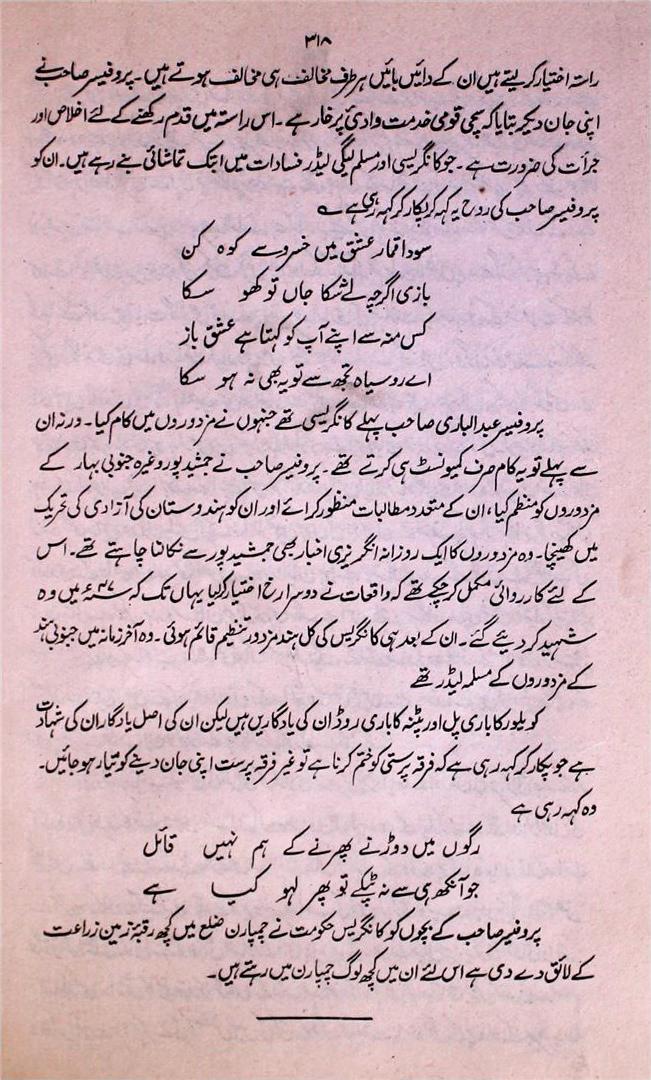 ۳۱۸
راستہ اختیار کر لیتے ہیں ان کے دائیں بائیں ہر طرف مخالف ہی مخالف ہوتے ہیں۔ پروفیسر صاحب نے
اپنی جان دیکر بتایا کہ سچی قومی خدمت وادئ پر خار ہے۔ اس راستہ میں قدم رکھنے کے لئے اخلاص اور
جرأت کی ضرورت ہے۔ جو کانگریسی اور مسلم لیگی لیڈر فسادات میں ابتک تماشائی بنے رہے ہیں۔ ان کو
پروفیسر صاحب کی روح یہ کہہ کر پکار کر کہہ رہی ہے ؎
سودا قمار عشق میں خسرو سے کوہ کن
بازی اگرچہ لے نہ سکا جاں تو کھو سکا
کس منہ سے اپنے آپ کو کہتا ہے عشق باز
اے رو سیاہ تجھ سے تو یہ بھی نہ ہو سکا
پروفیسر عبد الباری صاحب پہلے کانگریسی تھے جنہوں نے مزدوروں میں کام کیا۔ ورنہ ان
سے پہلے تو یہ کام صرف کمیونسٹ ہی کرتے تھے۔ پروفیسر صاحب نے جمشید پور وغیرہ جنوبی بہار کے
مزدوروں کو منظم کیا، ان کے متعدد مطالبات منظور کرائے اور ان کو ہندوستان کی آزادی کی تحریک
میں کھینچا۔ وہ مزدوروں کا ایک روزانہ انگریزی اخبار بھی جمشید پور سے نکالنا چاہتے تھے۔ اس
کے لئے کارروائی مکمل کر چکے تھے کہ واقعات نے دوسرا رخ اختیار کر لیا یہاں تک کہ ۴۷ء میں وہ
شہید کر دیئے گئے۔ ان کے بعد ہی کانگریس کی کل ہند مزدور تنظیم قائم ہوئی۔ وہ آخر زمانہ میں جنوبی ہند
کے مزدوروں کے مسلمہ لیڈر تھے
کویلور کا باری پل اور پٹنہ کا باری روڈ ان کی یادگاریں ہیں لیکن ان کی اصل یادگار ان کی شہادت
ہے جو پکار کر کہہ رہی ہے کہ فرقہ پرستی کو ختم کرنا ہے تو غیر فرقہ پرست اپنی جان دینے کو تیار ہو جائیں۔
وہ کہہ رہی ہے
رگوں میں دوڑنے پھرنے کے ہم نہیں قائل
جو آنکھ ہی سے نہ ٹپکے تو پھر لہو کیا ہے
پروفیسر صاحب کے بچوں کو کانگریس حکومت نے چمپارن ضلع میں کچھ رقبۂ زمین زراعت
کے لائق دے دی ہے اس لئے ان میں کچھ لوگ چمپارن میں رہتے ہیں۔